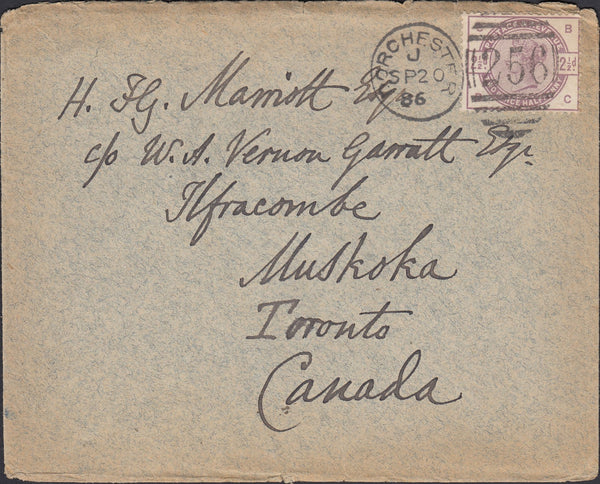 DORCHESTER
J
SP 20
86
256
C B
2½d 2½d
B C
H. Fg. Marriott Esq
c/o W. A. Vernon Garratt Esqr.
Ilfracombe
Muskoka
Toronto
Canada